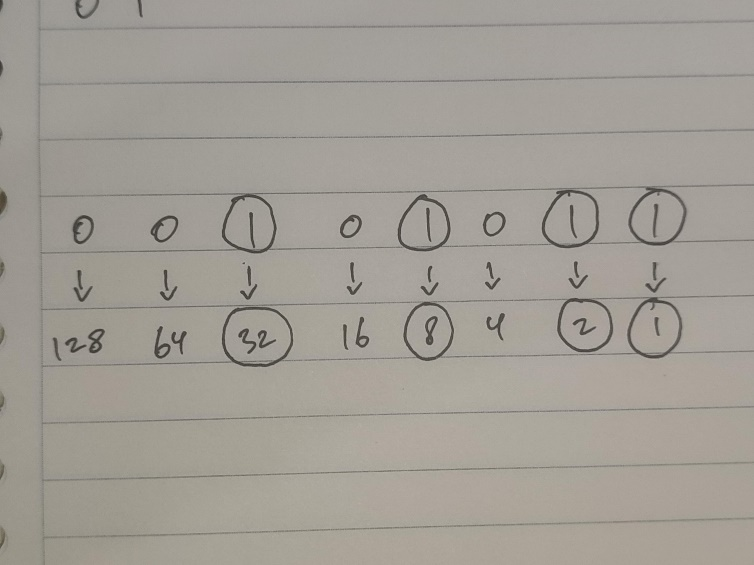 0 0 1 0 1 0 1 1
↓ ↓ ↓ ↓ ↓ ↓ ↓ ↓
128 64 32 16 8 4 2 1